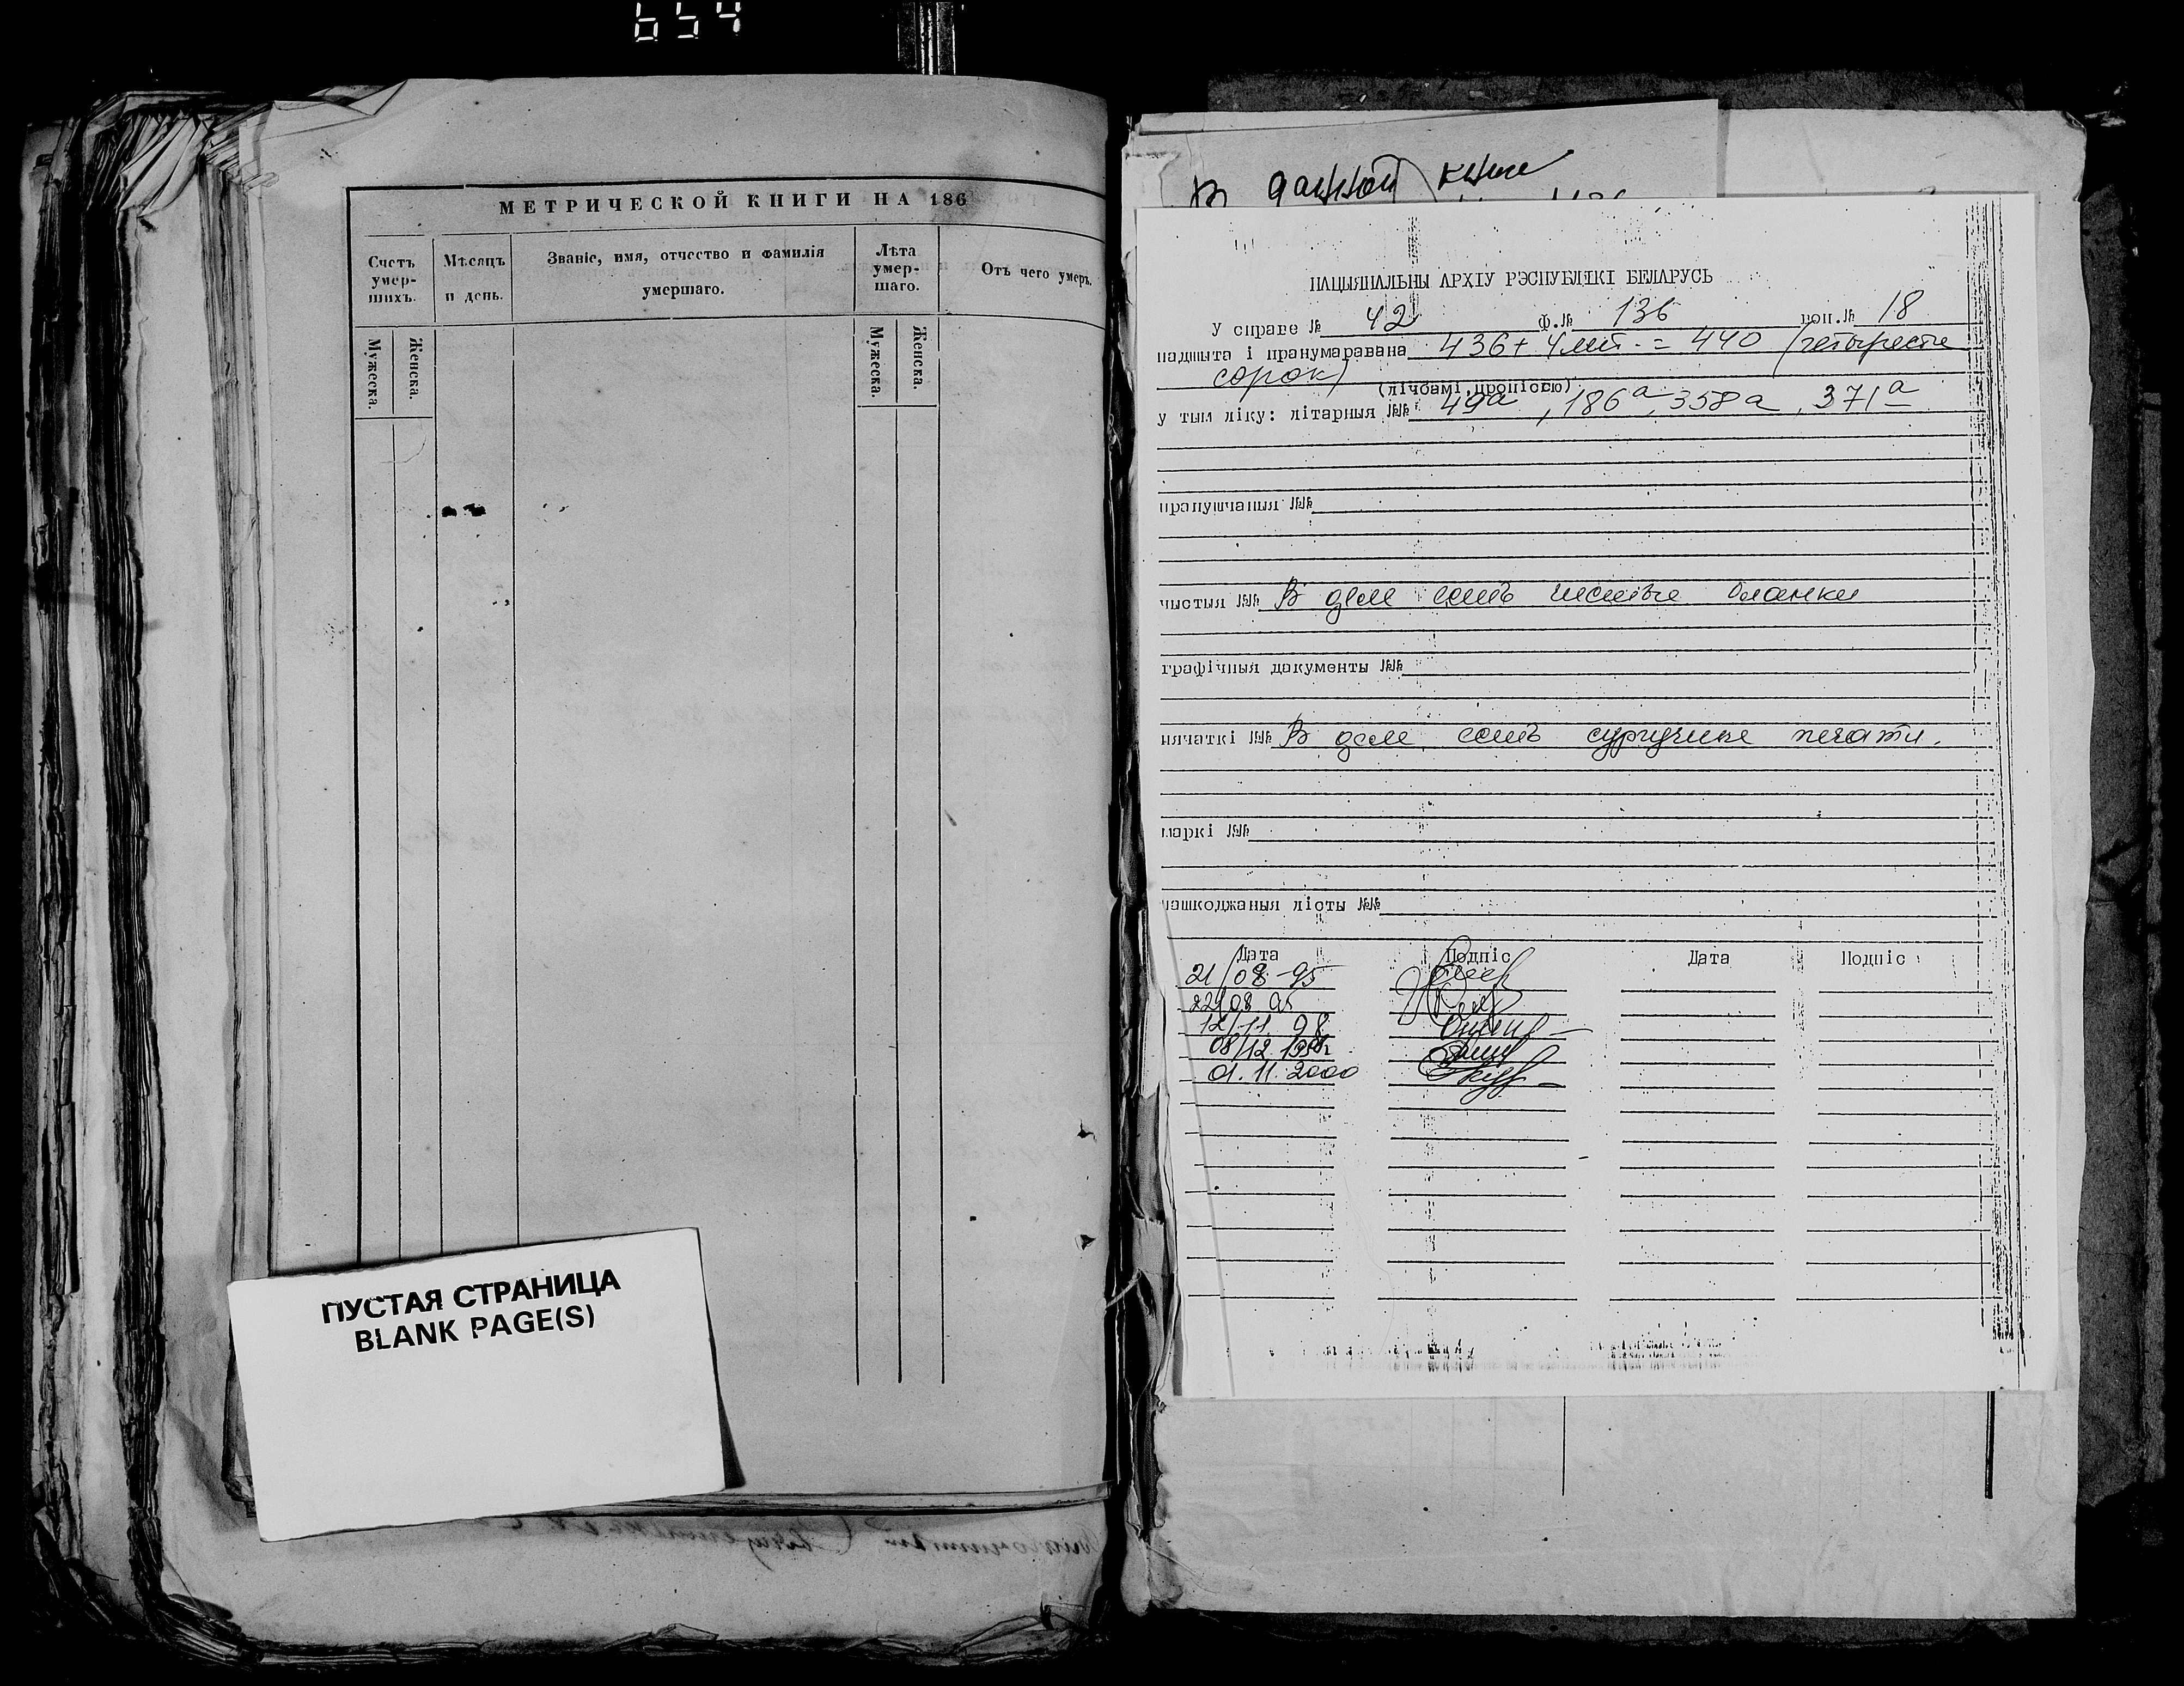 654
МЕТРИЧЕСКОЙ КНИГИ НА 186
Счетъ умер-шихъ.
Мѣсяцъ и день.
Званіе, имя, отчество и фамилія умершаго.
Лѣта умер-шаго.
Отъ чего умеръ.
Мужеска.
Женска.
Мужеска.
Женска.
ПУСТАЯ СТРАНИЦА
BLANK PAGE(S)
В данной книге
НАЦЫЯНАЛЬНЫ АРХІУ РЭСПУБЛІКІ БЕЛАРУСЬ
У справе № 42 Ф.№ 136 воп.№ 18
падшыта і пранумаравана 436+4 лит. = 440 (четыреста
сорок)
(лічбамі, пропіссю)
у тым ліку: літарныя №№ 49а, 186а, 358а, 371а
прапушчаныя №№
чыстыя №№ В деле есть чистые бланки
графічныя дакументы №№
пячаткі №№ В деле есть сургучные печати.
маркі №№
пашкоджаныя лісты №№
Дата Подпіс Дата Подпіс
21/08-95
22/08 95
12/11 98
08/12 1998г
01.11.2000